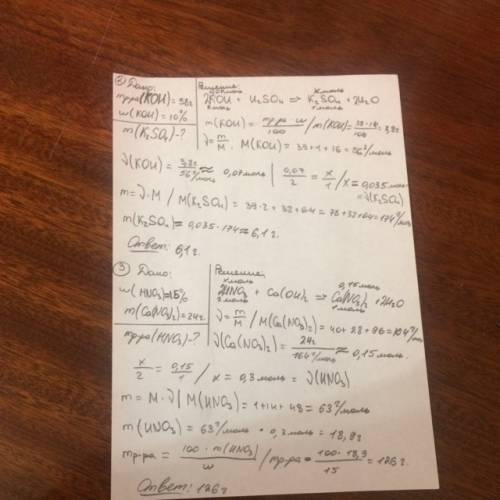 ② Дано:
mр-ра(KOH)=38г
w(KOH)=10%
m(K₂SO₄)-?
Решение:
0,07моль x моль
2KOH + H₂SO₄ ⇒ K₂SO₄ + 2H₂O
2моль 1моль
m(KOH) = mр-ра·w/100 / m(KOH)=38·10/100=3,8г
ν=m/M. M(KOH) = 39+1+16=56г/моль
ν(KOH) = 3,8г/56г/моль ≈ 0,07моль | 0,07/2 = x/1 / x=0,035моль
=ν(K₂SO₄)
m=ν·M / M(K₂SO₄) = 39·2+32+64=78+32+64=174г/моль
m(K₂SO₄)=0,035·174≈6,1г.
Ответ: 6,1г.
③ Дано:
w(HNO₃)=15%
m(Ca(NO₃)₂)=24г
mр-ра(HNO₃)-?
Решение:
x моль 0,15моль
2HNO₃ + Ca(OH)₂ ⇒ Ca(NO₃)₂ + 2H₂O
2моль 1моль
ν=m/M / M(Ca(NO₃)₂)=40+28+96=164г/моль
ν(Ca(NO₃)₂)= 24г/164г/моль ≈ 0,15моль.
x/2 = 0,15/1 / x = 0,3моль = ν(HNO₃)
m = M·ν / M(HNO₃)=1+14+48=63г/моль
m(HNO₃)=63г/моль · 0,3моль = 18,9г
mр-ра = 100·m(HNO₃)/w / mр-ра=100·18,9/15=126г.
Ответ: 126г